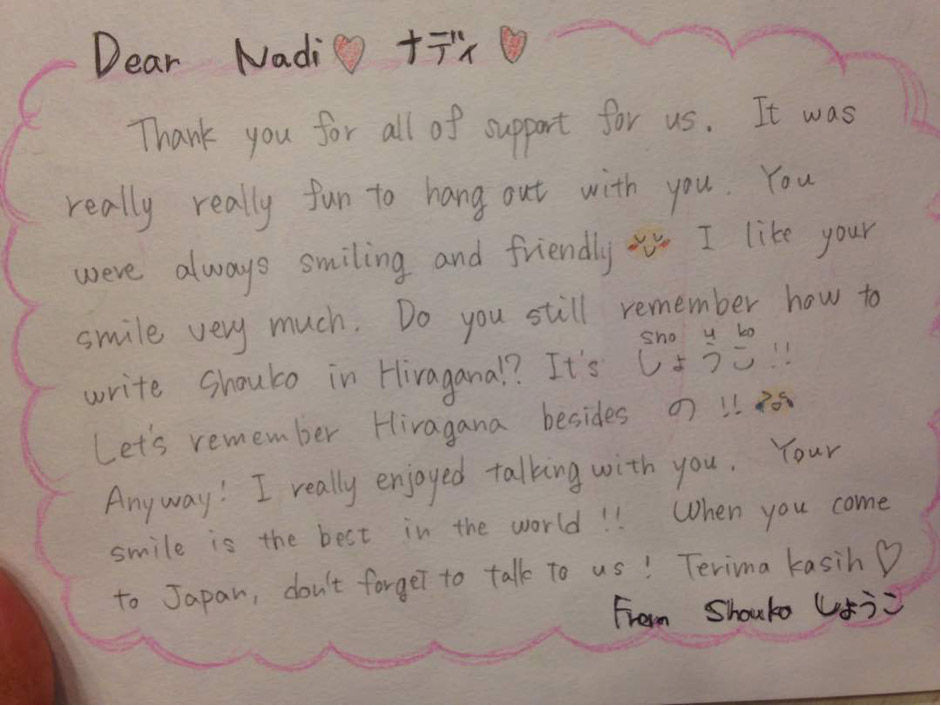 Dear Nadi♡ ナディ♡
Thank you for all of support for us. It was
really really fun to hang out with you. You
were always smiling and friendly I like your
smile very much. Do you still remember how to
sho u ko
write Shouko in Hiragana!? It's しょうこ!!
Let's remember Hiragana besides の!!
Anyway! I really enjoyed talking with you. Your
smile is the best in the world!! When you come
to Japan, don't forget to talk to us! Terima kasih♡
From Shouko しょうこ